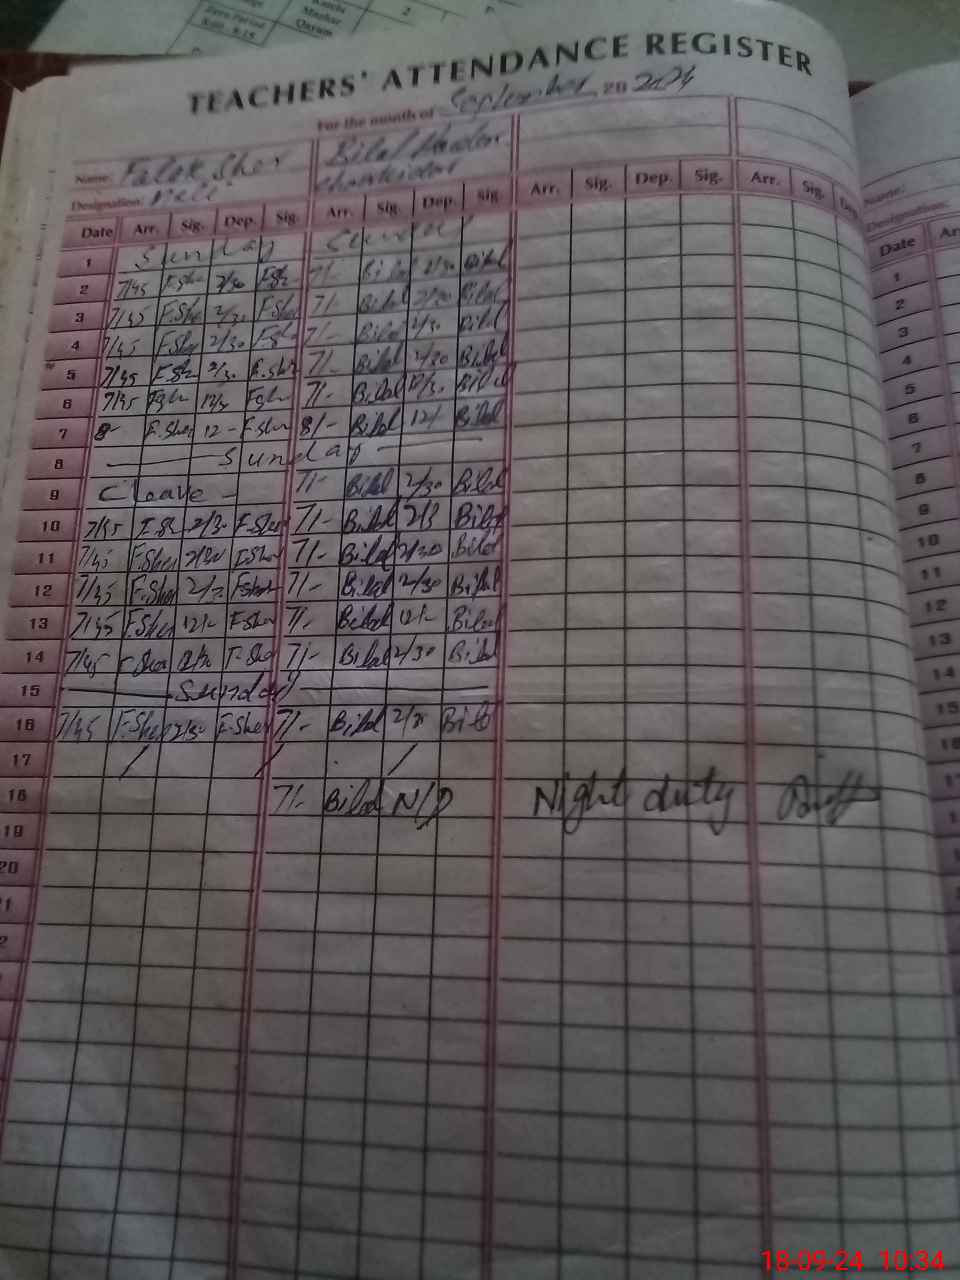 Zero Period
TEACHERS' ATTENDANCE REGISTER
For the month of September 20 2024
Name: Falak Sher Bilal
Designation: Chowkidar
Date Arr. Sig. Dep. Sig. Arr. Sig. Dep. Sig. Arr. Sig. Dep. Sig. Arr. Sig.
1 Sunday Sunday
2 7/45 F.Sher 2/30 F.Sher 7/- Bilal 2/30 Bilal
3 7/45 F.Sher 2/30 F.Sher 7/- Bilal 2/30 Bilal
4 7/45 F.Sher 2/30 F.Sher 7/- Bilal 2/30 Bilal
5 7/45 F.Sher 2/30 F.Sher 7/- Bilal 2/30 Bilal
6 7/45 12/- 7/- Bilal 12/- Bilal
7 8- F.Sher 12- F.Sher 8/- Bilal 12/ Bilal
8 Sunday
9 C leave - 7/- Bilal 2/30 Bilal
10 7/45 F.Sh 2/30 F.Sher 7/- Bilal 2/3 Bilal
11 7/45 F.Sher 2/30 F.Sher 7/- Bilal 2/30 Bilal
12 7/45 F.Sher 2/30 F.Sher 7/- Bilal 2/30 Bilal
13 7/45 F.Sher 12/- F.Sher 7/- Bilal 12/- Bilal
14 7/45 F.Sher F.Sher 7/- Bilal 2/30 Bilal
15 Sunday
16 7/45 F.Sher 2/30 F.Sher 7/- Bilal 2/30 Bilal
17 / / /
18 7/- Bilal N/D Night duty
19
20
Name:
Designation:
Date Arr.
1
2
3
4
5
6
7
8
9
10
11
12
13
14
15
16
18-09-24 10:34